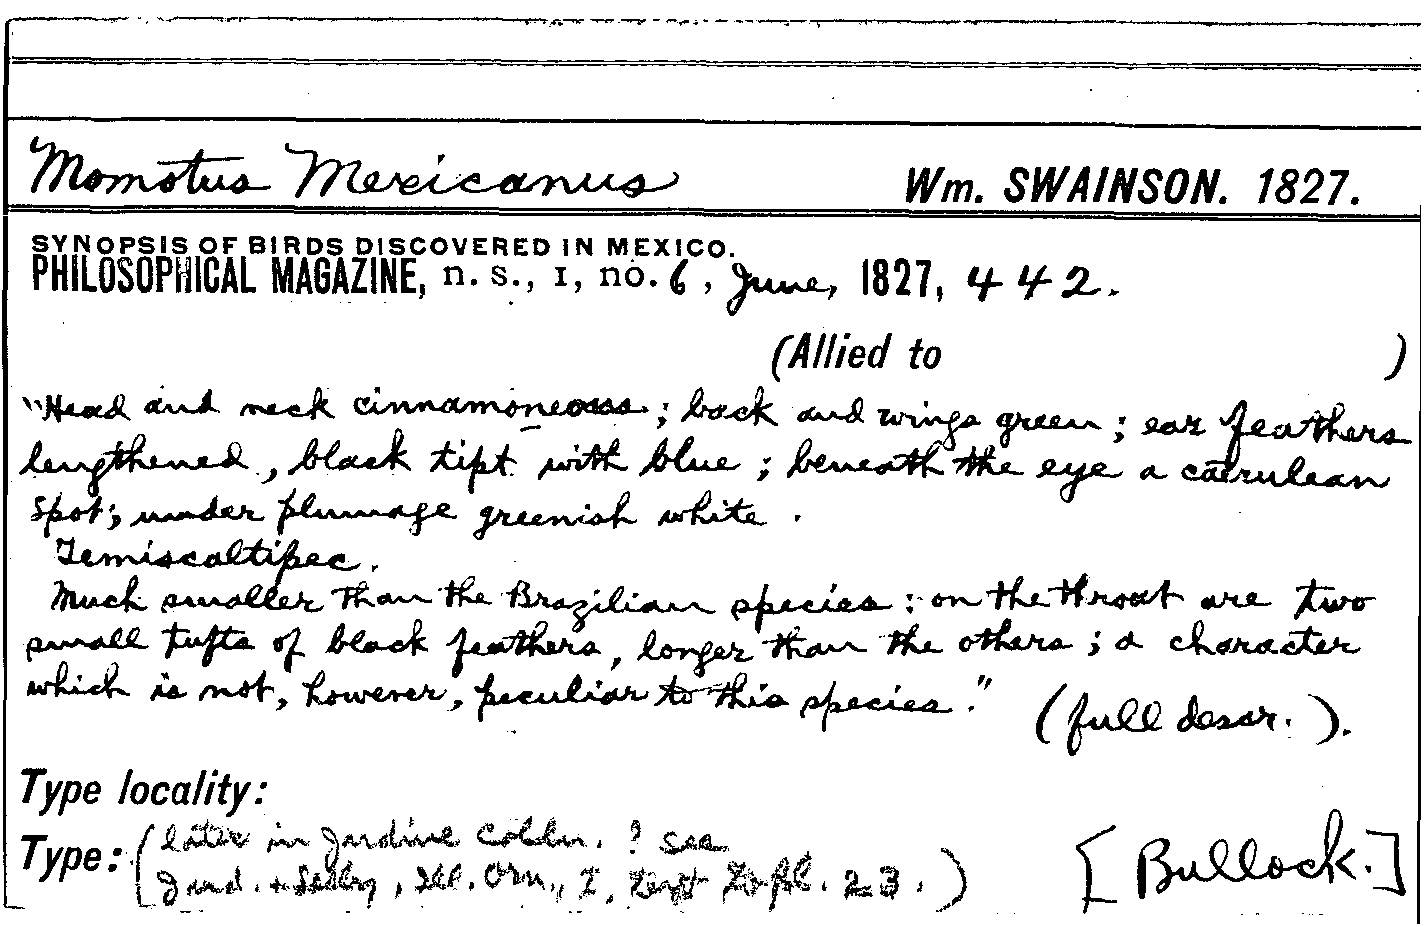 Momotus Mexicanus Wm. SWAINSON. 1827.
SYNOPSIS OF BIRDS DISCOVERED IN MEXICO.
PHILOSOPHICAL MAGAZINE, n. s., I, no. 6, June, 1827, 442.
(Allied to )
"Head and neck cinnamoneous; back and wings green; ear feathers
lengthened, black tipt with blue; beneath the eye a caerulean
spot; under plumage greenish white.
Temiscaltipec.
Much smaller than the Brazilian species: on the throat are two
small tufts of black feathers, longer than the others; a character
which is not, however, peculiar to this species." (full descr.).
Type locality:
Type: (later in Jardine Colln. ? see
Jard. + Selby, Ill. Orn., I, text to pl. 23.) [Bullock.]